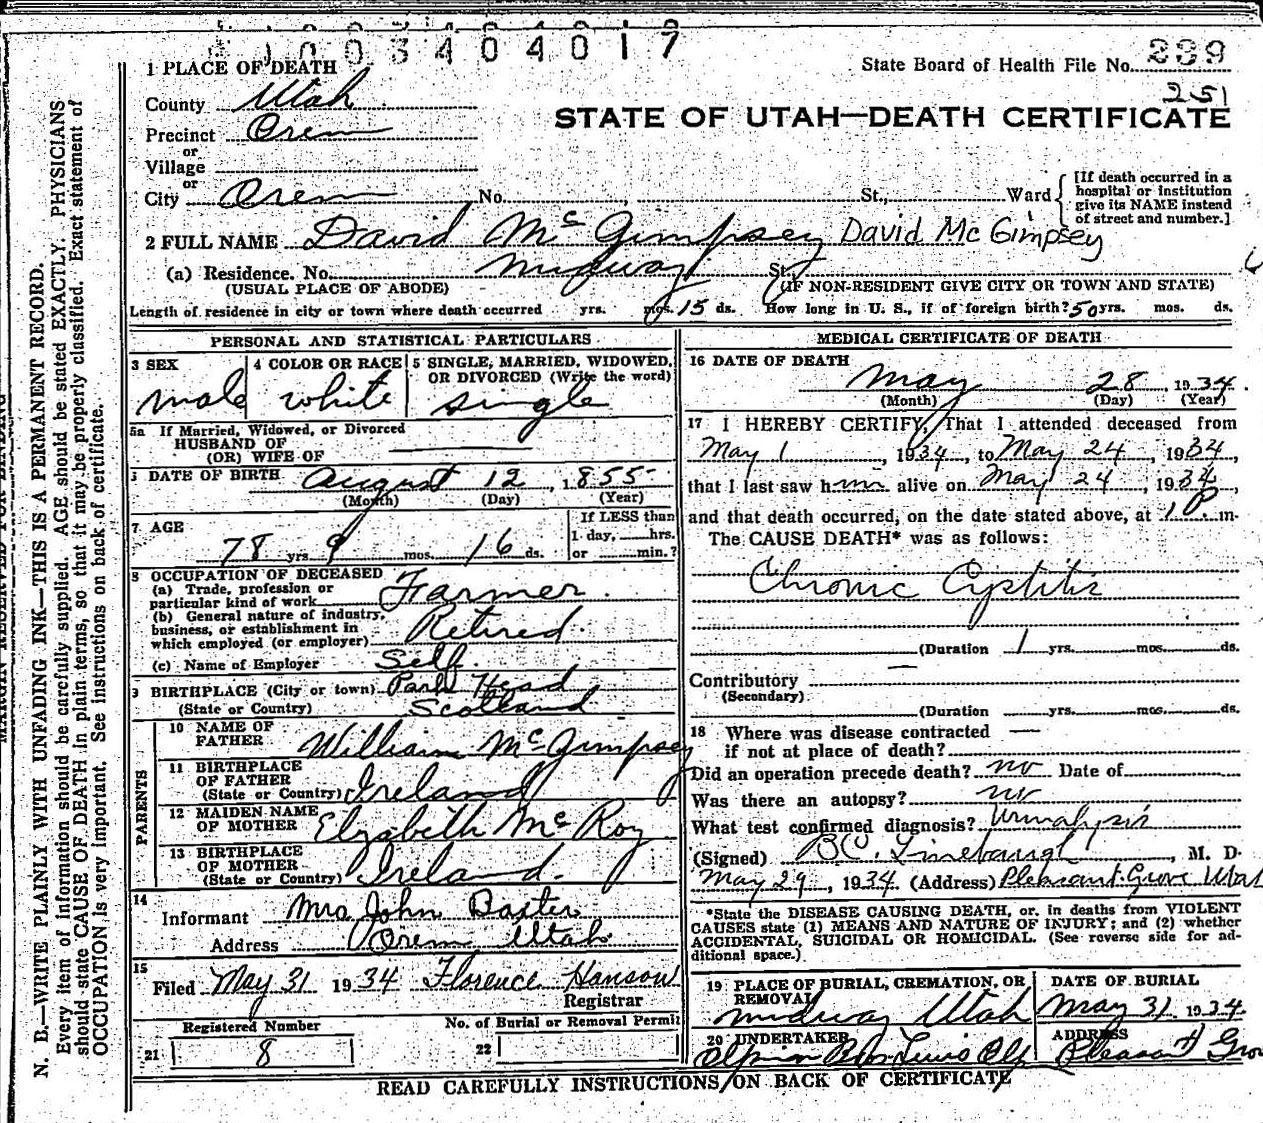 1003404017
State Board of Health File No. 239
251
STATE OF UTAH—DEATH CERTIFICATE
1 PLACE OF DEATH
County Utah
Precinct Orem
or
Village
or
City Orem No. St., Ward
[If death occurred in a
hospital or institution
give its NAME instead
of street and number.]
2 FULL NAME David McGimpsey David McGimpsey
(a) Residence. No. Midway St.
(USUAL PLACE OF ABODE) (IF NON-RESIDENT GIVE CITY OR TOWN AND STATE)
Length of residence in city or town where death occurred yrs. mos. 15 ds. How long in U. S., if of foreign birth? 50 yrs. mos. ds.
PERSONAL AND STATISTICAL PARTICULARS
3 SEX
male
4 COLOR OR RACE
white
5 SINGLE, MARRIED, WIDOWED,
OR DIVORCED (Write the word)
single
5a If Married, Widowed, or Divorced
HUSBAND OF
(OR) WIFE OF
DATE OF BIRTH August 12, 1855
(Month) (Day) (Year)
7 AGE
78 yrs 9 mos. 16 ds.
If LESS than
1 day, hrs.
or min.?
8 OCCUPATION OF DECEASED
(a) Trade, profession or
particular kind of work Farmer.
(b) General nature of industry,
business, or establishment in
which employed (or employer) Retired.
(c) Name of Employer Self.
9 BIRTHPLACE (City or town) Park Head
(State or Country) Scotland
PARENTS
10 NAME OF
FATHER William McGimpsey
11 BIRTHPLACE
OF FATHER
(State or Country) Ireland
12 MAIDEN NAME
OF MOTHER Elizabeth McRoy
13 BIRTHPLACE
OF MOTHER
(State or Country) Ireland.
14
Informant Mrs John Baxter
Address Orem Utah
15
Filed May 31 1934 Florence Hanson
Registrar
Registered Number
21 8
No. of Burial or Removal Permit
22
MEDICAL CERTIFICATE OF DEATH
16 DATE OF DEATH
May 28, 1934.
(Month) (Day) (Year)
17 I HEREBY CERTIFY, That I attended deceased from
May 1, 1934, to May 24, 1934,
that I last saw him alive on May 24, 1934,
and that death occurred, on the date stated above, at 1 P. m.
The CAUSE DEATH* was as follows:
Chronic Cystitis
(Duration 1 yrs. mos. ds.
Contributory
(Secondary)
(Duration yrs. mos. ds.
18 Where was disease contracted —
if not at place of death?
Did an operation precede death? no Date of
Was there an autopsy? no
What test confirmed diagnosis? Urinalysis
(Signed) BC. Linebaugh, M. D.
May 29, 1934. (Address) Pleasant Grove Utah
*State the DISEASE CAUSING DEATH, or, in deaths from VIOLENT
CAUSES state (1) MEANS AND NATURE OF INJURY; and (2) whether
ACCIDENTAL, SUICIDAL OR HOMICIDAL. (See reverse side for ad-
ditional space.)
19 PLACE OF BURIAL, CREMATION, OR
REMOVAL
Midway Utah
DATE OF BURIAL
May 31 1934
20 UNDERTAKER
ADDRESS
Pleasant Gro
READ CAREFULLY INSTRUCTIONS ON BACK OF CERTIFICATE
MARGIN RESERVED FOR BINDING
N. B.—WRITE PLAINLY WITH UNFADING INK—THIS IS A PERMANENT RECORD.
Every item of information should be carefully supplied. AGE should be stated EXACTLY. PHYSICIANS
should state CAUSE OF DEATH in plain terms, so that it may be properly classified. Exact statement of
OCCUPATION is very important. See instructions on back of certificate.